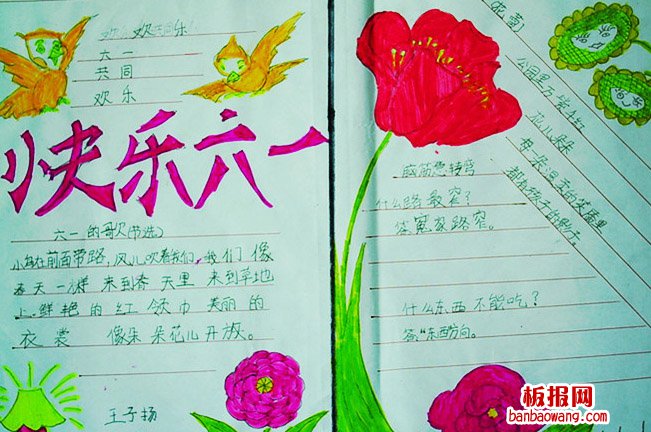 欢乐
六一
共同
欢乐
快乐六一
六一的歌(节选)
小鸟在前面带路,风儿吹着我们,我们像
春天一样 来到春天里 来到草地
上.鲜艳的红领巾美丽的
衣裳 像朵朵花儿开放。
王子扬
脑筋急转弯
什么路最窄?
答冤家路窄。
什么东西不能吃?
答"东西方向。
公园里万紫千红
花儿朵朵
板报网
banbaowang.com